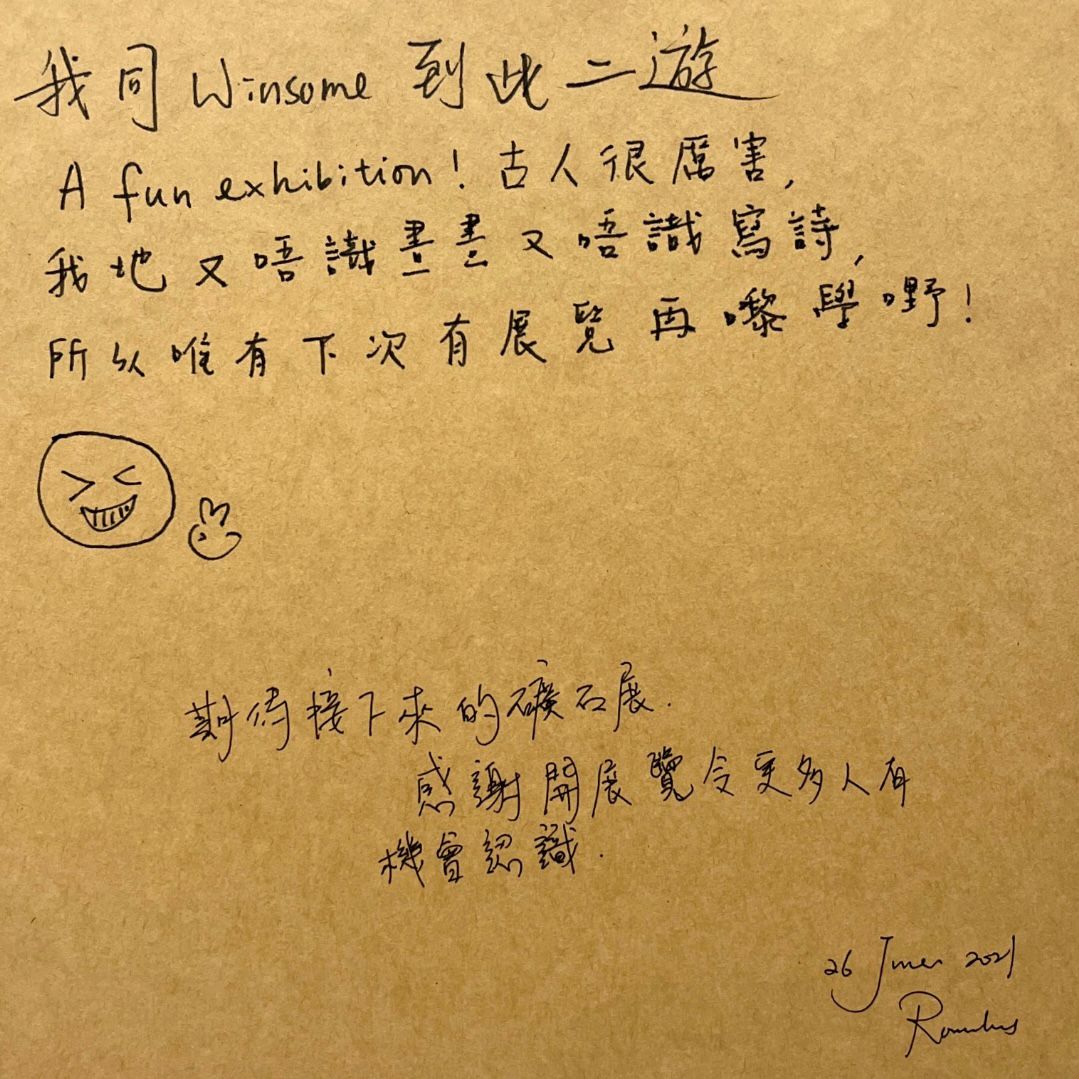 我同 Winsome 到此二遊
A fun exhibition! 古人很厲害,
我地又唔識畫畫又唔識寫詩,
所以唯有下次有展覽再嚟學嘢!
期待接下來的礦石展.
感謝開展覽令更多人有
機會認識.
26 June 2021
Romulus